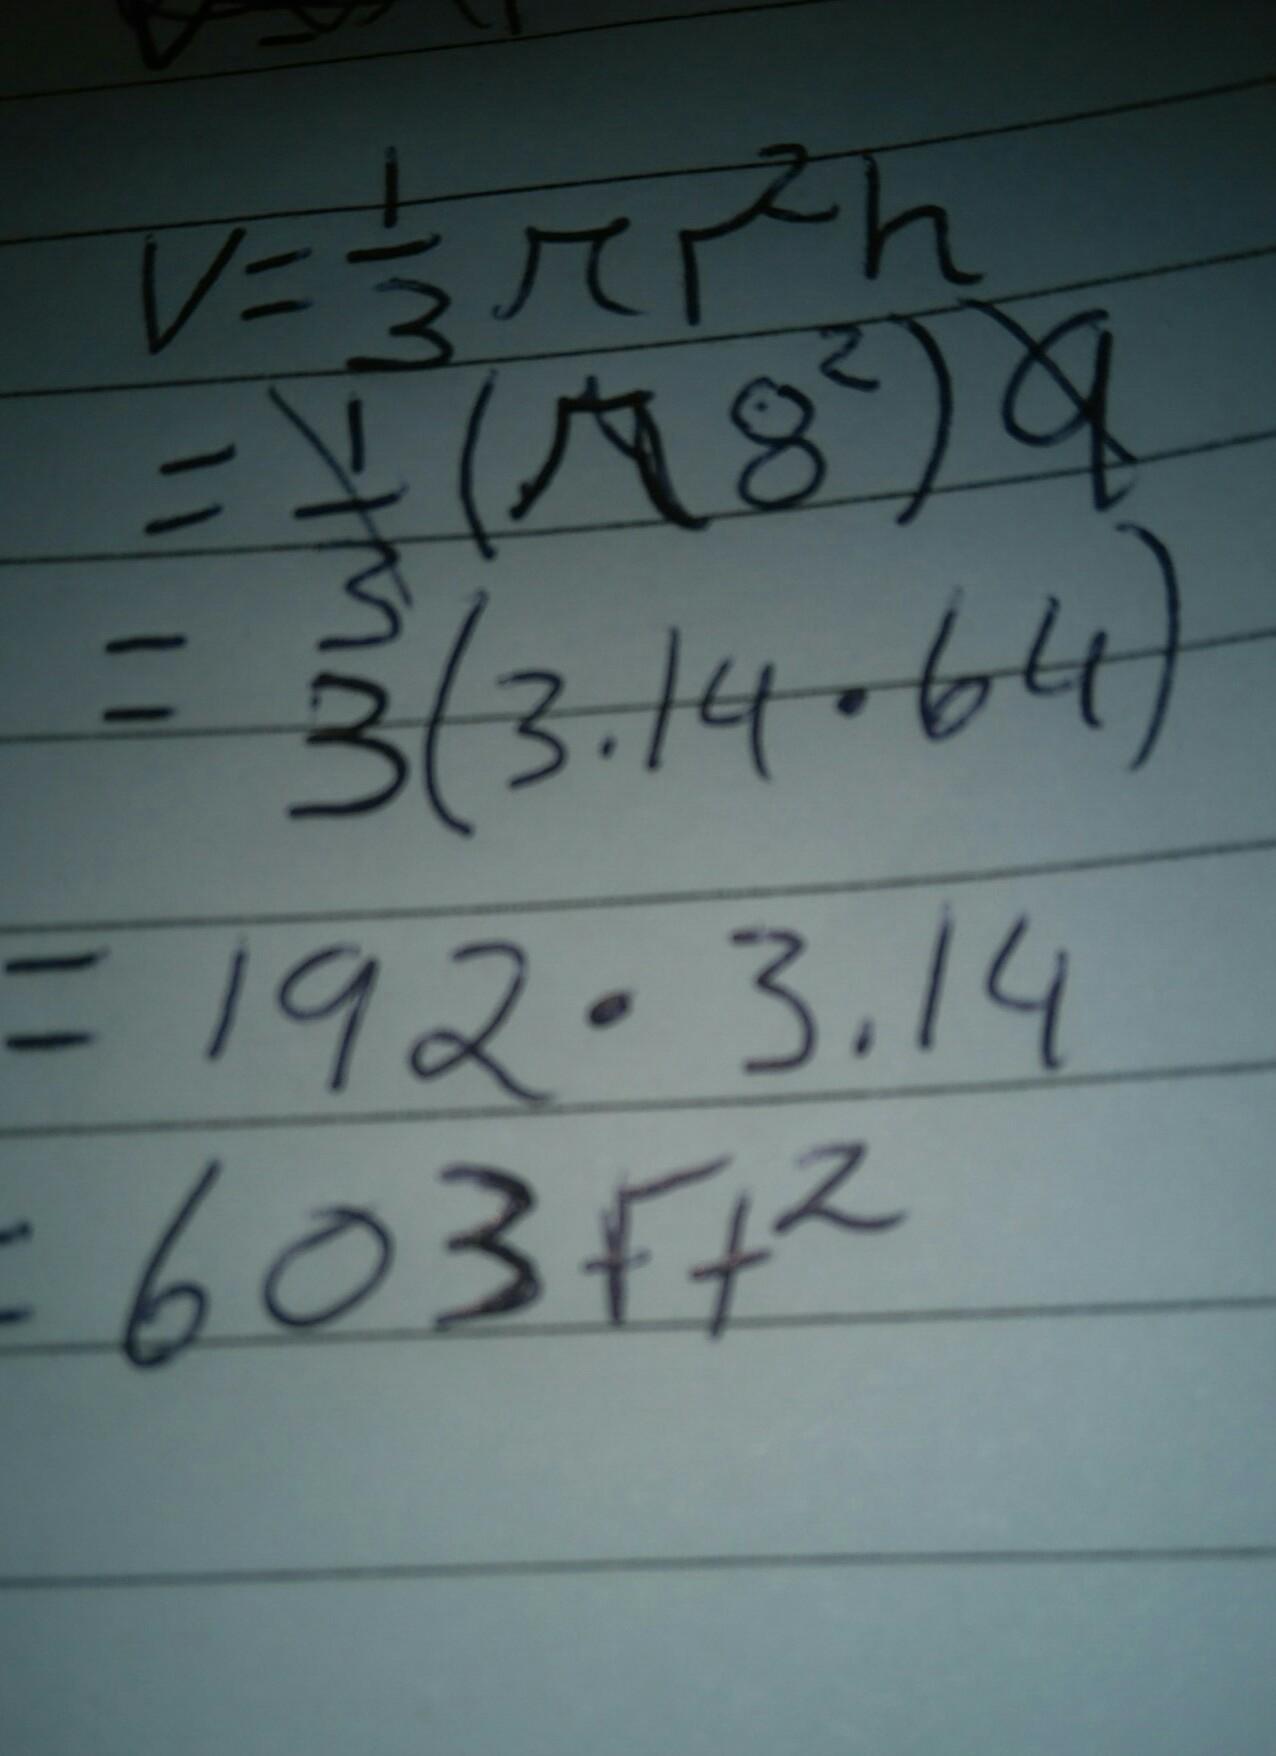 V = 1/3 πr²h
= 1/3 (π8²) 9
= 3(3.14 · 64)
= 192 · 3.14
= 603 ft²